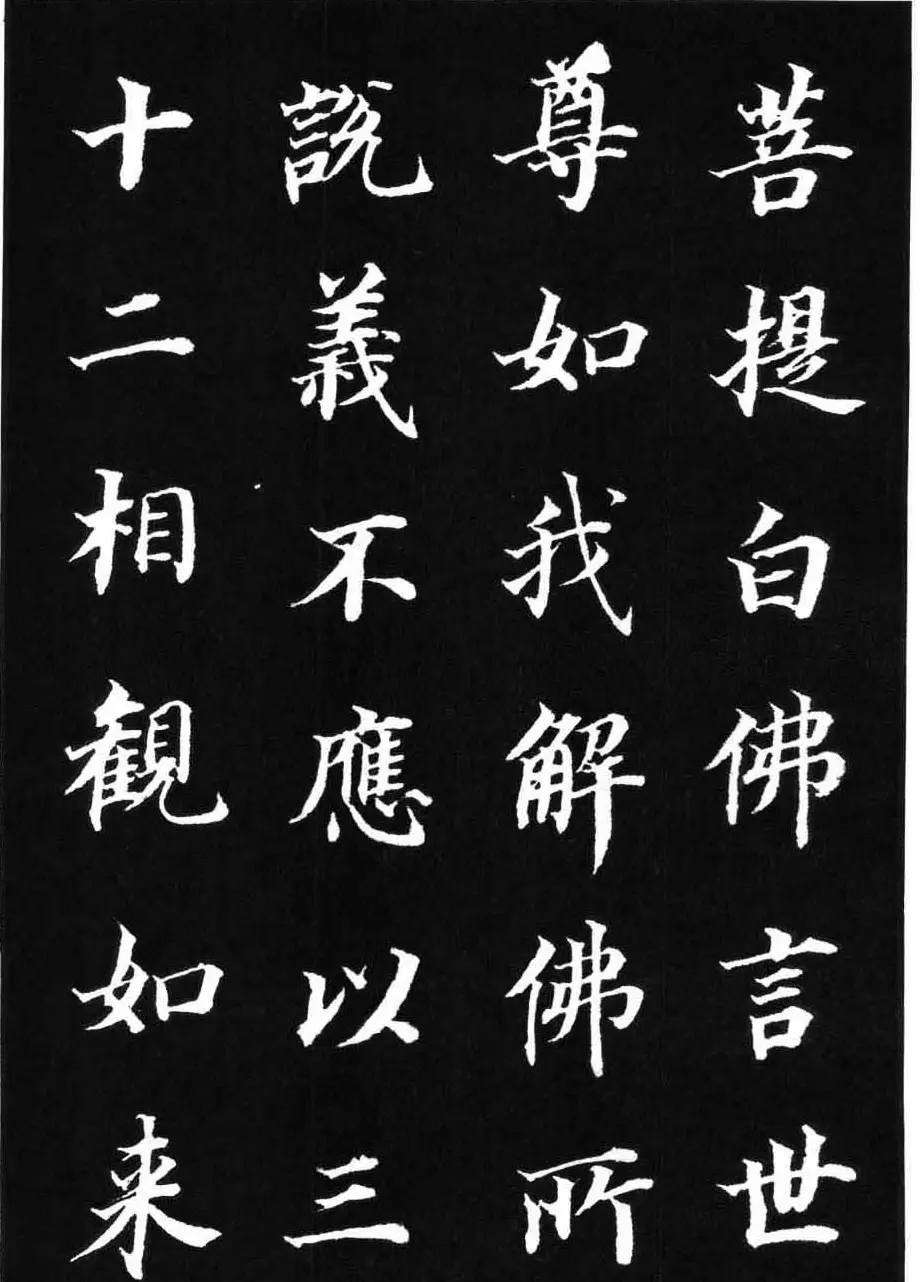 菩提白佛言世
尊如我解佛所
說義不應以三
十二相觀如来